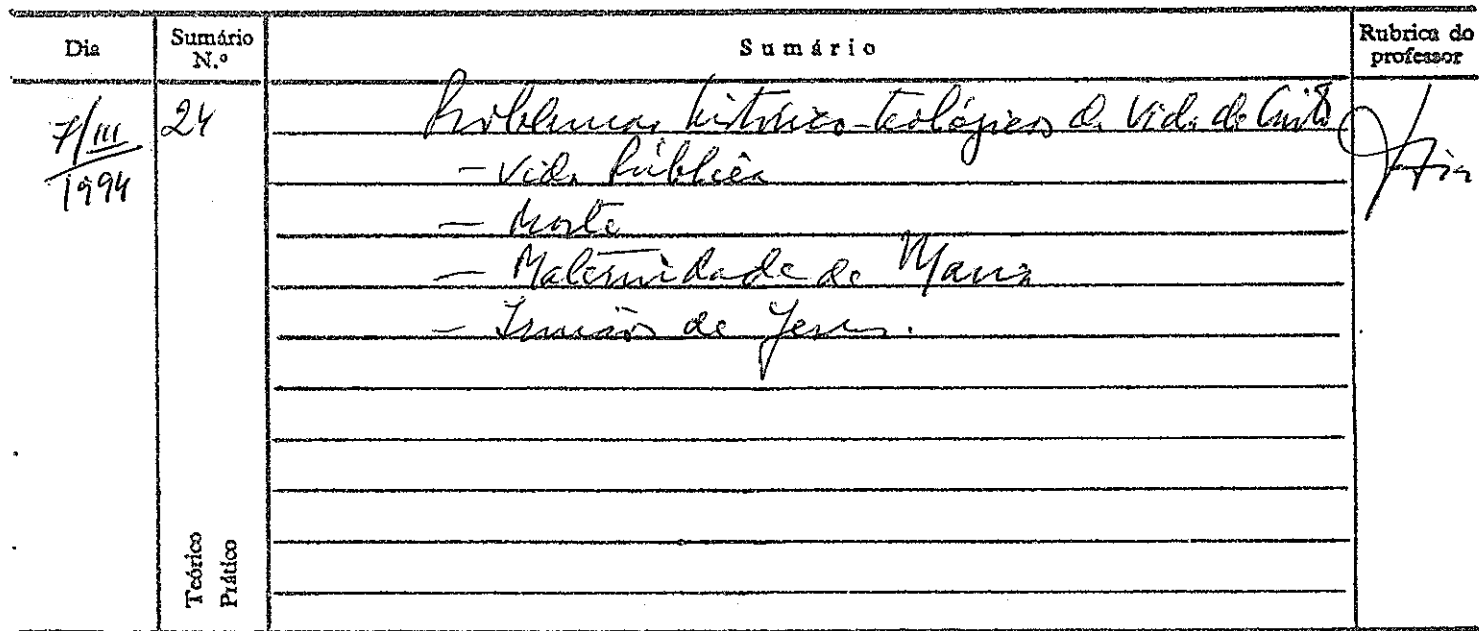 Dia Sumário N.º Sumário Rubrica do professor
7/III/1994 24 Problemas histórico-teológicos da Vida de Cristo
- Vida Pública
- Morte
- Maternidade de Maria
- Irmãos de Jesus.
Teórico
Prático